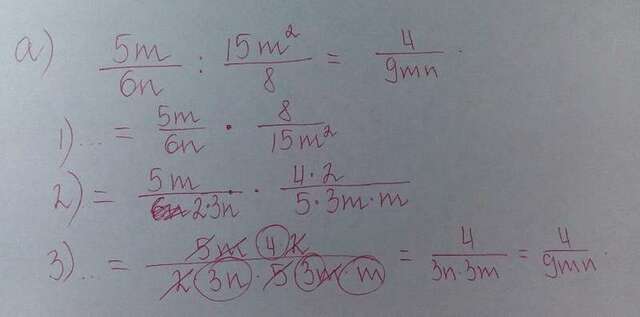 a) 5m/6n : 15m²/8 = 4/9mn.
1) ... = 5m/6n · 8/15m²
2) = 5m/2·3n · 4·2/5·3m·m
3) ... = 5m 4 2/2 3n · 5 3m·m = 4/3n·3m = 4/9mn.